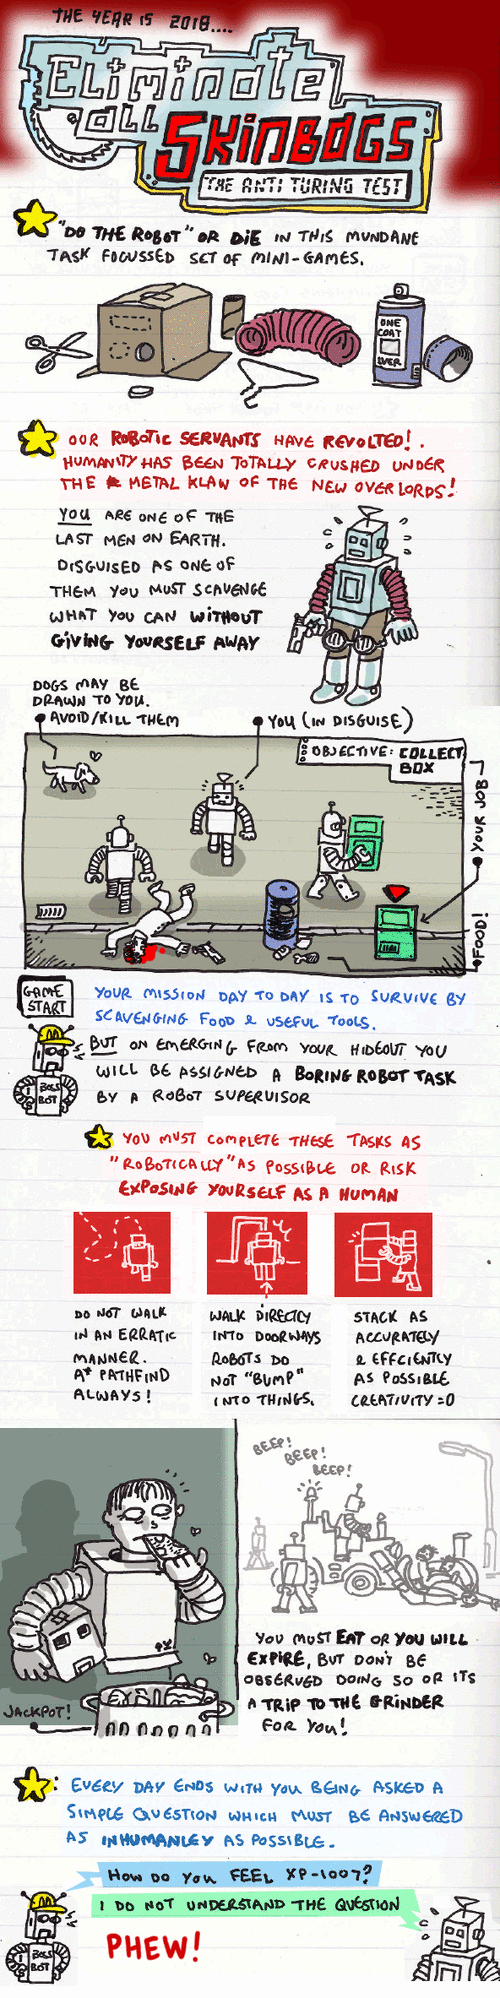 THE YEAR IS 2018....
Eliminate
all
SKINBAGS
THE ANTI TURING TEST
"DO THE ROBOT" OR DiE IN THIS MUNDANE
TASK FOCUSSED SET OF MINI-GAMES.
ONE
COAT
OUR ROBOTIC SERVANTS HAVE REVOLTED!.
HUMANITY HAS BEEN TOTALLY CRUSHED UNDER
THE METAL KLAW OF THE NEW OVERLORDS!
YOU ARE ONE OF THE
LAST MEN ON EARTH.
DISGUISED AS ONE OF
THEM YOU MUST SCAVENGE
WHAT YOU CAN WITHOUT
GIVING YOURSELF AWAY
DOGS MAY BE
DRAWN TO YOU.
AVOID/KILL THEM
YOU (IN DISGUISE)
OBJECTIVE: COLLECT
BOX
YOUR JOB
FOOD!
GAME
START
YOUR MISSION DAY TO DAY IS TO SURVIVE BY
SCAVENGING FOOD & USEFUL TOOLS.
BUT ON EMERGING FROM YOUR HIDEOUT YOU
WILL BE ASSIGNED A BORING ROBOT TASK
BY A ROBOT SUPERVISOR
BOSS
BOT
YOU MUST COMPLETE THESE TASKS AS
"ROBOTICALLY" AS POSSIBLE OR RISK
EXPOSING YOURSELF AS A HUMAN
DO NOT WALK
IN AN ERRATIC
MANNER.
A* PATHFIND
ALWAYS!
WALK DIRECTLY
INTO DOORWAYS
ROBOTS DO
NOT "BUMP"
INTO THINGS.
STACK AS
ACCURATELY
& EFFCIENTLY
AS POSSIBLE
CREATIVITY=0
BEEP!
BEEP!
BEEP!
YOU MUST EAT OR YOU WILL
EXPIRE, BUT DON'T BE
OBSERVED DOING SO OR ITS
A TRIP TO THE GRINDER
FOR YOU!
JACKPOT!
EVERY DAY ENDS WITH YOU BEING ASKED A
SIMPLE QUESTION WHICH MUST BE ANSWERED
AS INHUMANLEY AS POSSIBLE.
HOW DO YOU FEEL XP-1007?
I DO NOT UNDERSTAND THE QUESTION
PHEW!
BOSS
BOT